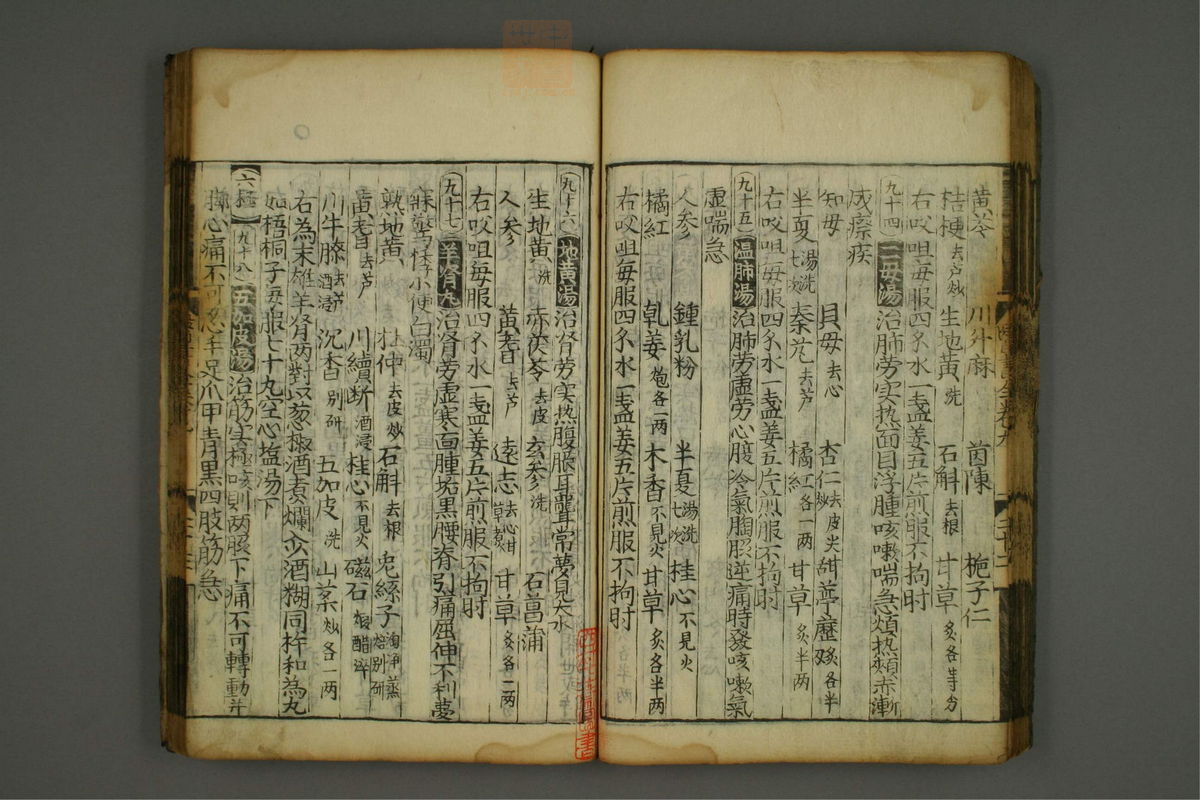 黄芩 川升麻 茵陳 梔子仁
桔梗去芦炒 生地黄洗 石斛去根 甘草炙各等分
右㕮咀每服四钱水一盏姜五片煎服不拘时
九十四 二母湯 治肺劳实热面目浮腫咳嗽喘急煩热頰赤漸
成瘵疾
知母 貝母去心 杏仁去皮尖炒 甜葶藶炙各半两
半夏湯洗七次 秦艽去芦 橘紅各一两 甘草炙半两
右㕮咀每服四钱水一盏姜五片煎服不拘时
九十五 温肺湯 治肺劳虛劳心腹冷氣胸脇逆痛時發咳嗽氣
虛喘急
人參 鍾乳粉 半夏湯洗七次 桂心不見火
橘紅 乹姜炮各一两 木香不見火 甘草炙各半两
右㕮咀每服四钱水一盏姜五片煎服不拘时
九十六 地黄湯 治肾劳实热腹脹耳聾常夢見大水
生地黄洗 赤茯苓去皮 玄参洗 石菖蒲
人参 黄耆去芦 遠志去心甘草煮 甘草炙各一两
右㕮咀每服四钱水一盏姜五片煎服不拘时
九十七 羊肾丸 治肾劳虛寒面腫垢黑腰脊引痛屈伸不利夢
寐驚悸小便白濁
熟地黄 杜仲去皮炒 石斛去根 兎絲子淘净蒸焙别研
黄耆去芦 川續断酒浸 桂心不見火 磁石煅醋淬
川牛膝去芦酒浸 沉香别研 五加皮洗 山藥炒各一两
右為末雄羊肾两對以葱椒酒煮爛入酒糊同杵和為丸
如梧桐子每服七十丸空心塩湯下
六極 九十八 五加皮湯 治筋实極咳則两脇下痛不可轉動并
脚心痛不可忍手足爪甲青黑四肢筋急